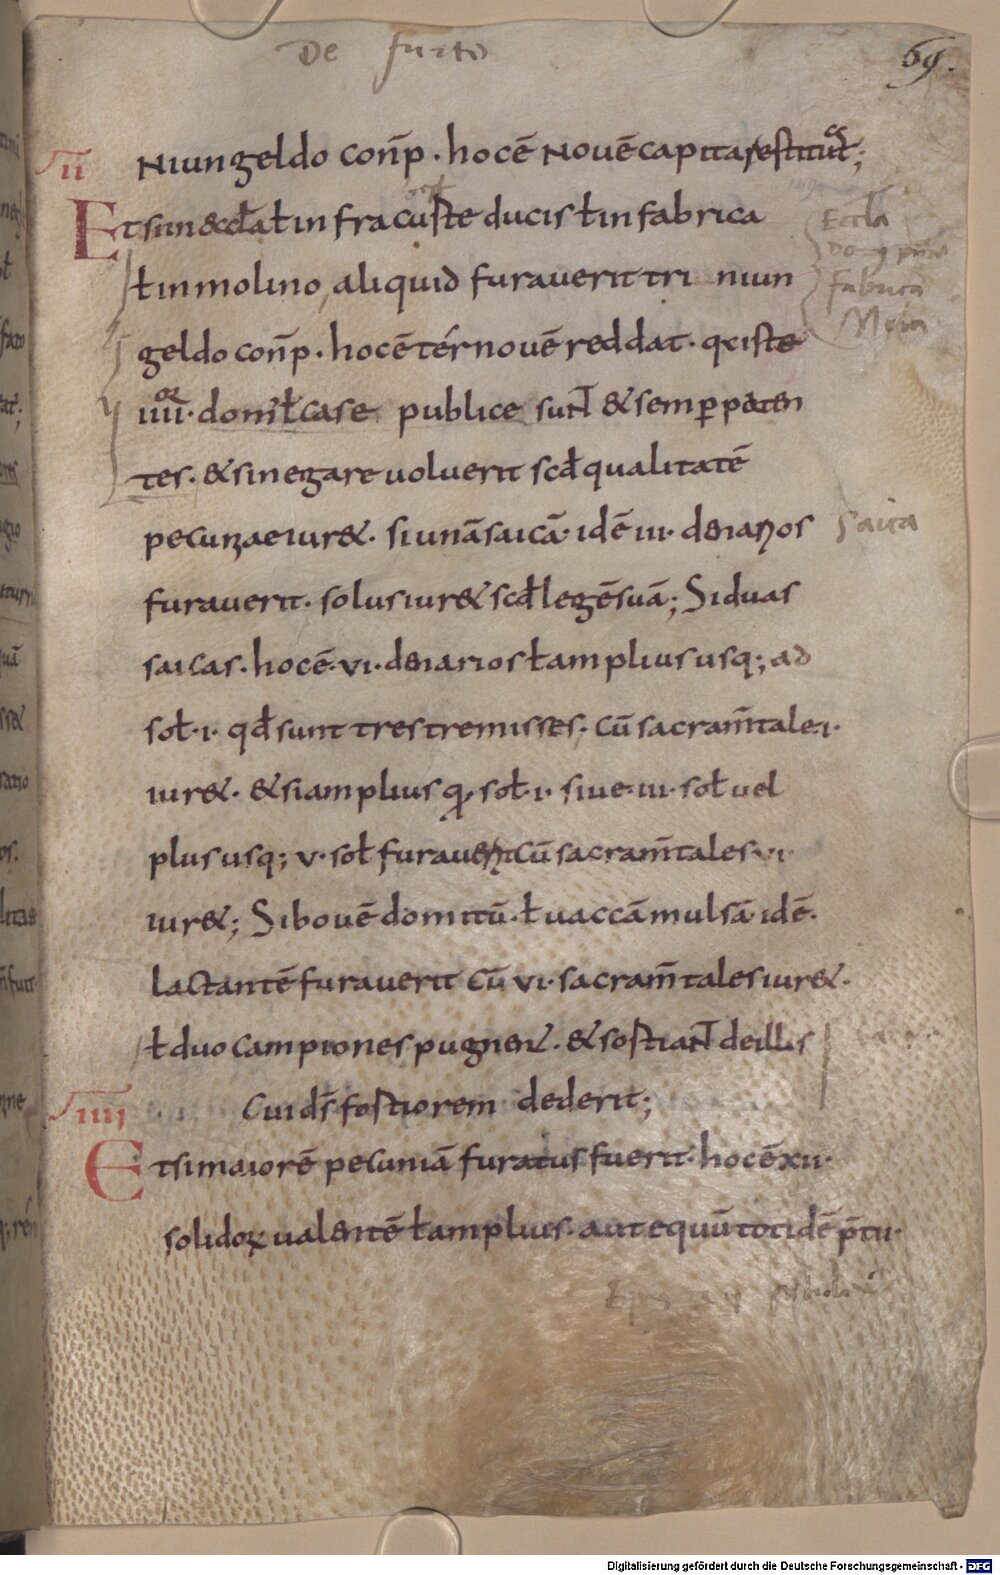 De furto
69.
Niungeldo con̄p · hoc ē Novē capita restituat;
II
Et si in eccl̄a ł infra curte ducis ł in fabrica
Eccl̄a
ł in molino, aliquid furaverit tri niun
fabrica
geldo con̄p · hoc ē tér novē reddat · q̄ iste
iiii · domꝰ ł case publice sunt & semp paten
tes · & si negare voluerit scd̄ qualitatē
pecuniae iur& · si unā saicā · idē III · denarios
saica
furaverit · solus iur& scd̄ legē suā; Si duas
saicas · hoc ē · VI · denarios ł amplius usq; ad
sol̄ · I · qd̄ sunt tres tremisses · cū sacram̄tale · I ·
iur& · & si amplius q̄ · sol̄ · I · sive · III · sol̄ vel
plus usq; V · sol̄ furaverit cū sacram̄tales · VI ·
iur&; Si bovē domitū · ł vaccā mulsā · idē ·
lactantē furaverit cū VI · sacram̄tales iur& ·
ł duo campiones pugnent · & sortiant de illis
IIII
Cui dś fortiorem dederit;
Et si maiorē pecuniā furatus fuerit · hoc ē XII ·
solidoꝝ valentē ł amplius · aut equū totidē p̄tii ·
Digitalisierung gefördert durch die Deutsche Forschungsgemeinschaft - DFG